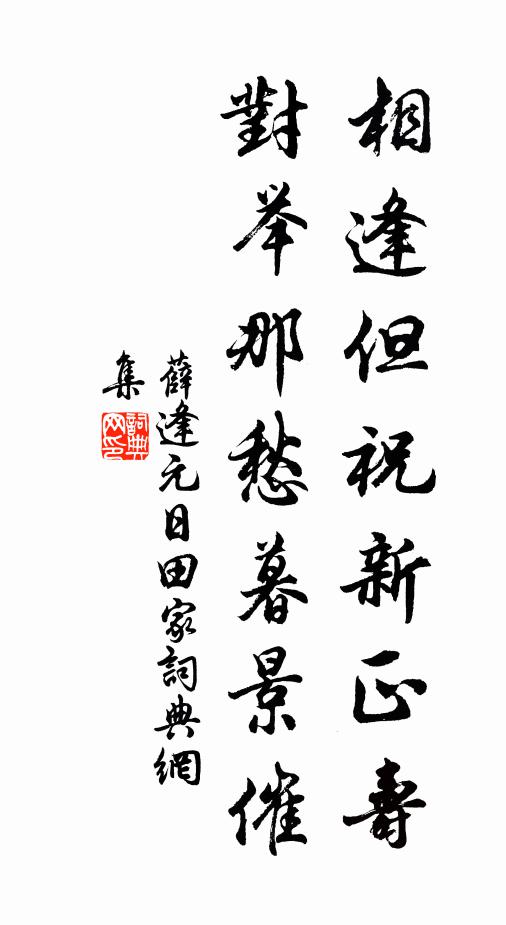 相逢但祝新正壽
對举那愁暮景催
薛逢元日田家詞典網
集
詞典
网印